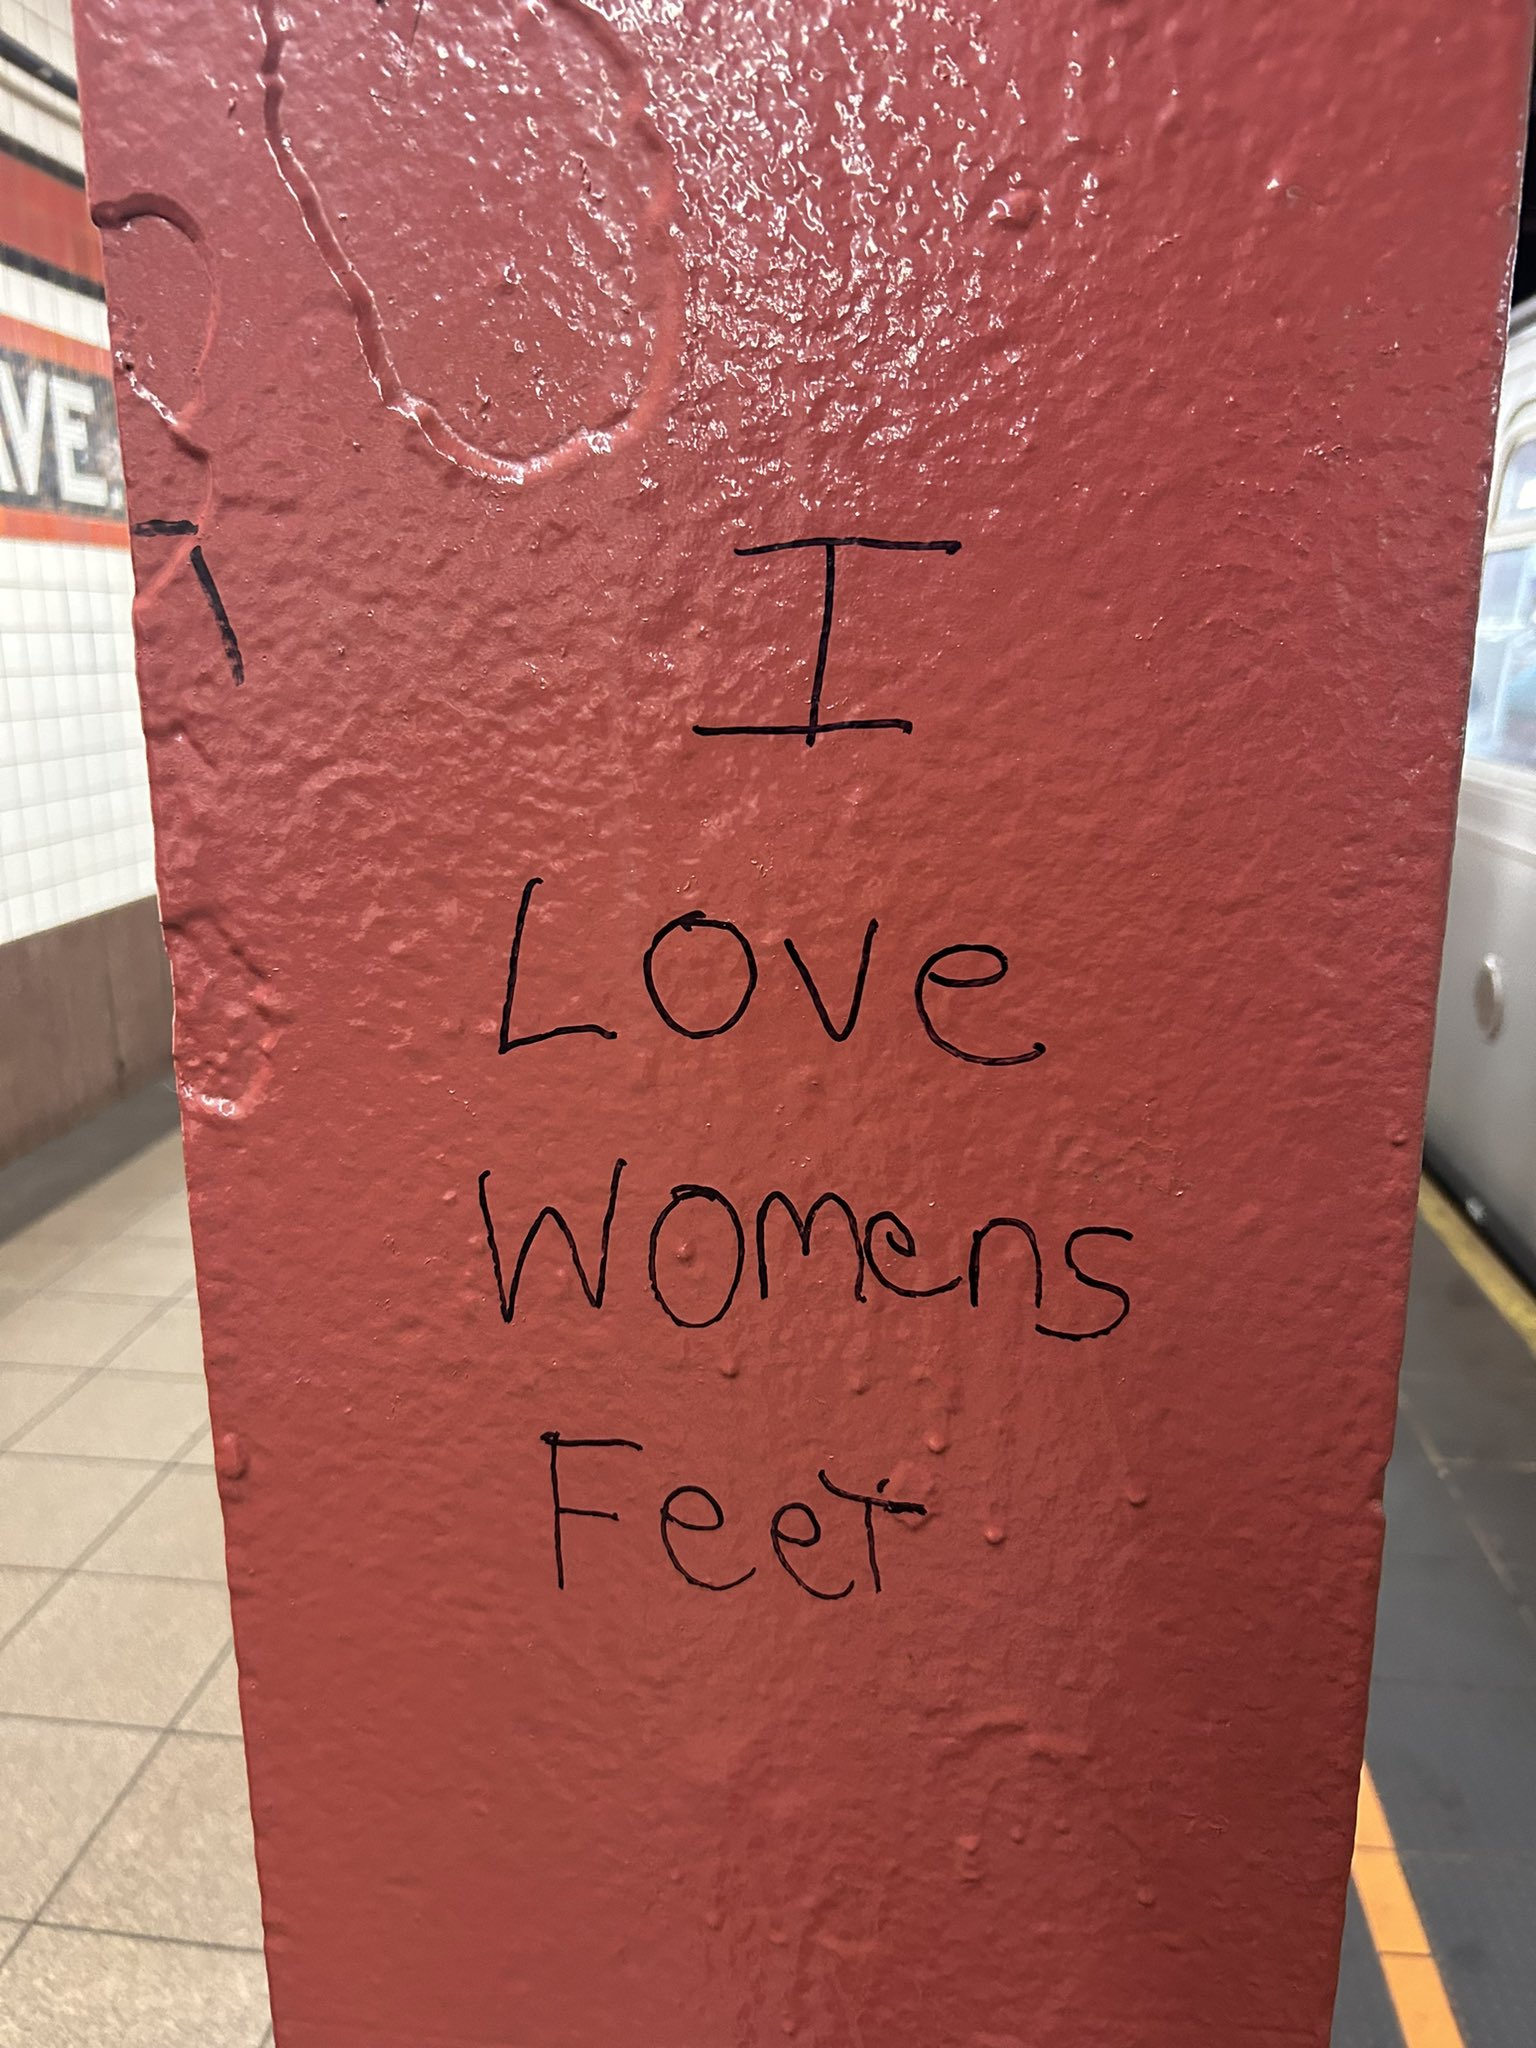 AVE.
I
Love
Womens
Feet